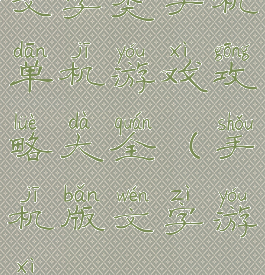 dān jī yóu xì gōng
单机游戏攻
lüè dà quán shǒu
略大全（手
jī bǎn wén zì yóu
机版文字游
xì